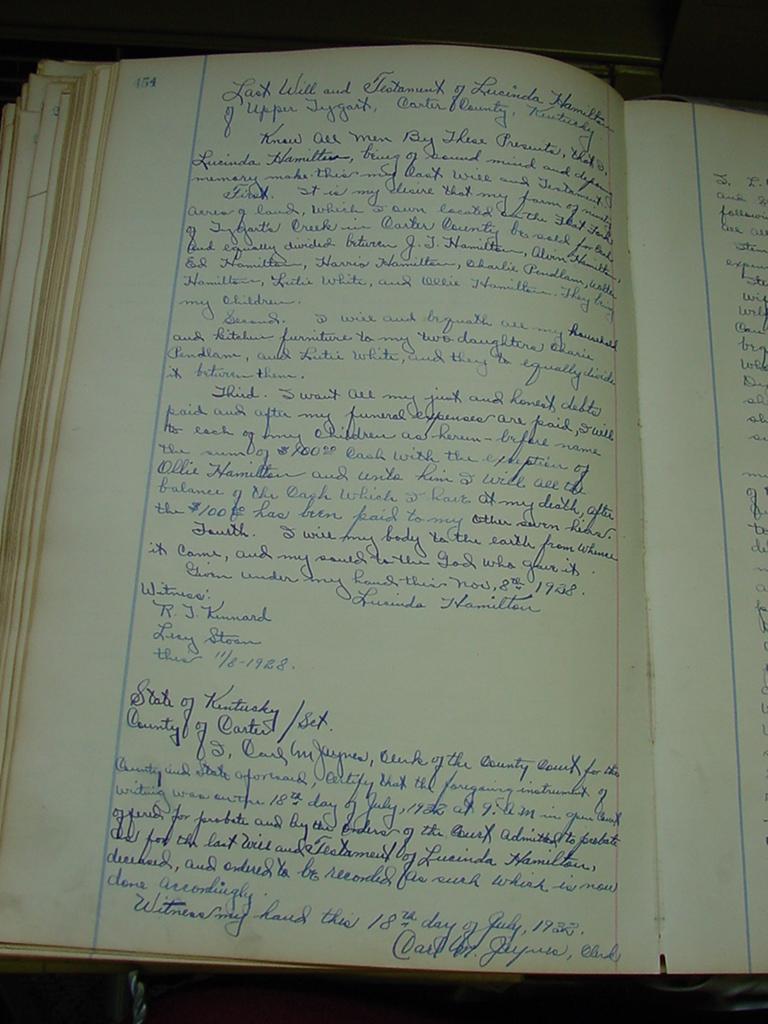 454
Last Will and Testament of Lucinda Hamilton
of Upper Tygart, Carter County, Kentucky
Know All Men By These Presents, that I,
Lucinda Hamilton, being of sound mind and
memory make this my Last Will and Testament.
First. It is my desire that my farm of ninety
acres of land, which I own located on the Flat Fork
of Tygarts Creek in Carter County be sold for cash
and equally divided between J. T. Hamilton, Alvin Hamilton,
Ed Hamilton, Harris Hamilton, Charlie Pendlam, Walter
Hamilton, Lutie White, and Ollie Hamilton. They being
my children.
Second. I will and bequath all my household
and kitchen furniture to my two daughters
Pendlam, and Lutie White, and they to equally divide
it between them.
Third. I want all my just and honest debts
paid and after my funeral expenses are paid, I will
to each of my children as herein-before name
the sum of $100.00 Cash with the exception of
Ollie Hamilton and unto him I will all the
balance of the Cash which I have at my death, after
the $100.00 has been paid to my other seven heirs.
Fourth. I will my body to the earth from whence
it came, and my sould to the God who gave it.
Given under my hand this Nov, 8th, 1928.
Lucinda Hamilton
Witness:
R. T. Kinnard
Stoan
this 11/8-1928.
State of Kentucky / Sct.
County of Carter
I, Carl M. Jaynes, Clerk of the County Court for the
County and State aforesaid, Certify that the foregoing instrument of
writing was on the 18th day of July, 1932 at 9. A.M in open Court
offered for probate and by the orders of the Court admitted to probate
as for the last Will and Testament of Lucinda Hamilton,
deceased, and ordered to be recorded as such which is now
done accordingly.
Witness my hand this 18th day of July, 1932.
Carl M. Jaynes, Clerk